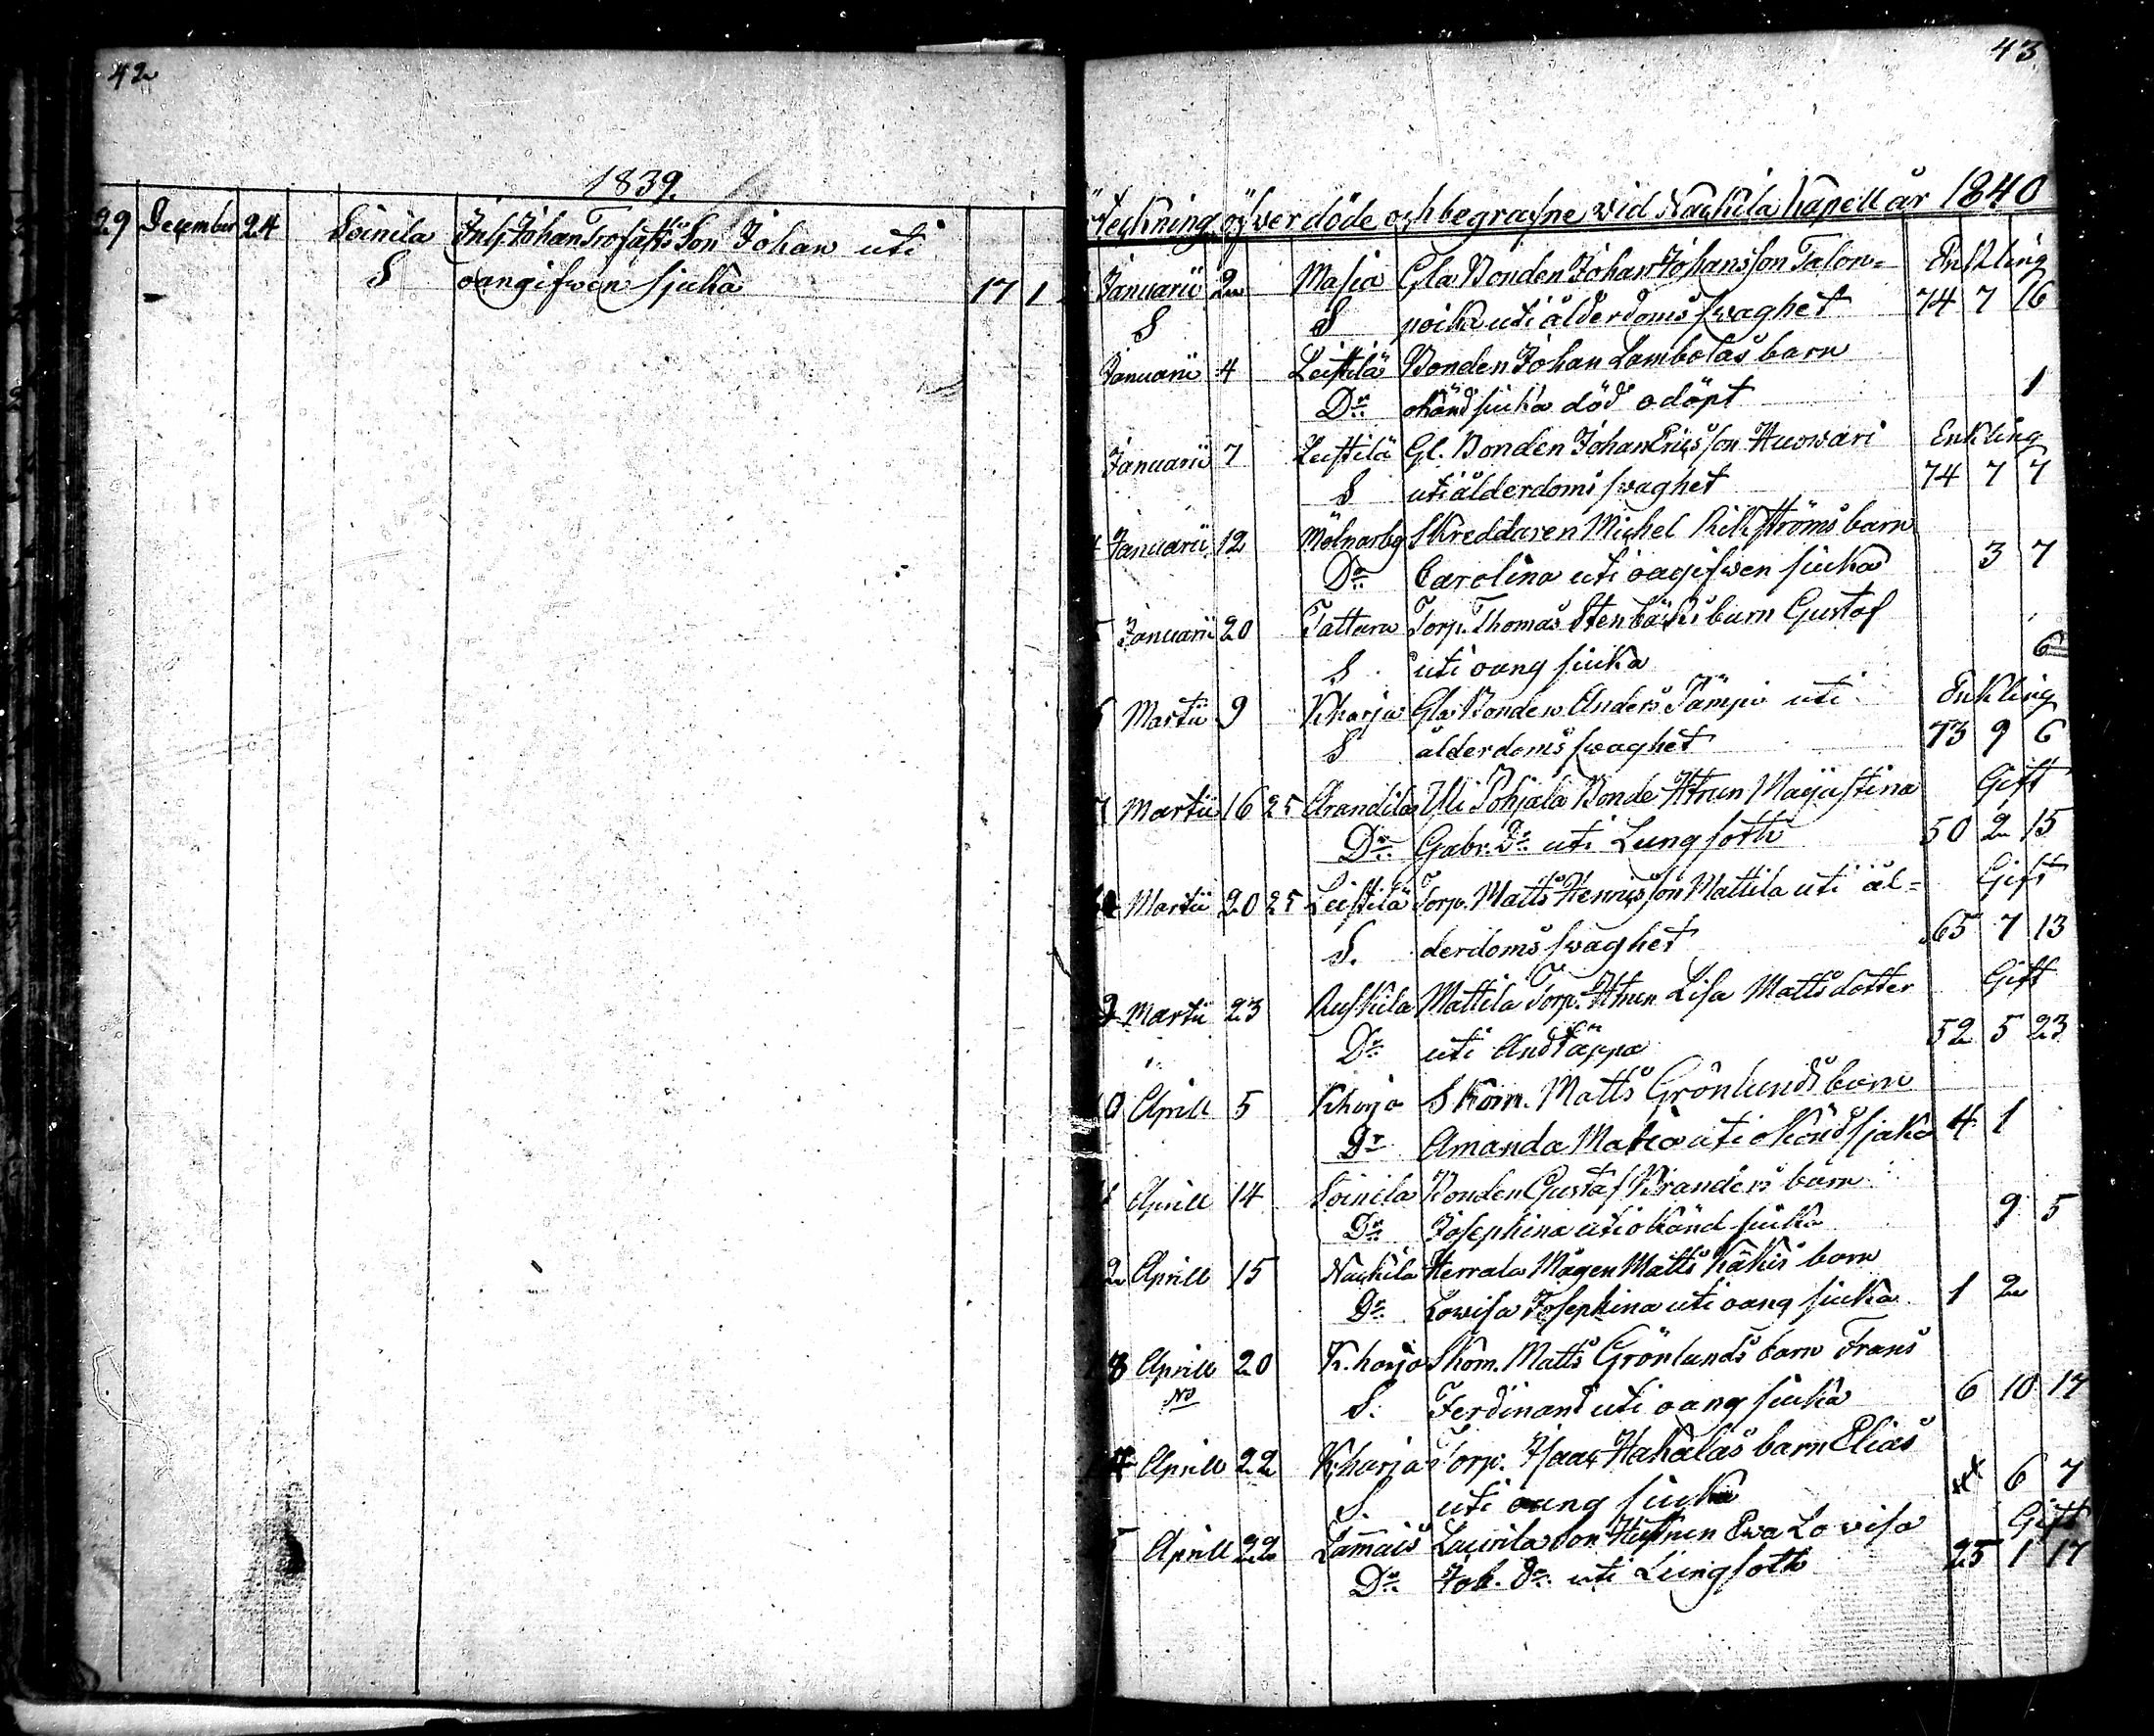 42
1839.
29 December 24 Soinila Inh. Johan Trofasts Son Johan uti
S oangifwen sjuka 17 1
43
teckning öfver döde och begrafne vid Nackila Kapell år 1840
Januarii 2 Masia Gla Bonden Johan Johansson Talon= Enkling
S S poika uti ålderdoms swaghet 74 7 16
Januarii 4 Leistilä Bonden Johan Lambolas barn
Dr okänd sjuka död odöpt 1
Januarii 7 Leistilä Gl. Bonden Johan Ericsson Huowari Enkling
S uti ålderdoms swaghet 74 7 7
4 Januarii 12 Michel Rikströms barn
Dr Carolina uti oagifwen sjuka 3 7
5 Januarii 20 Tattara Torp. Thomas Stenbäcks barn Gustaf
S uti oang sjuka 6
6 Martii 9 Kharja Gla Bonden Anders Tämpi uti Enkling
S ålderdoms swaghet 73 9 6
7 Martii 16 25 Arandila Yli Pohjala Bonde Hstrun Majastina Gift
Dr Gabr. Dr uti Lungsoth 50 2 15
Martii 20 25 Leistilä Torp. Matts Henricsson Mattila uti ål= Gift
S. derdoms swaghet 65 7 13
9 Martii 23 Ruskila Mattila Torp. Hstrun Lisa Mattsdotter Gift
Dr uti Andtäppa 52 5 23
10 Aprill 5 Kharja Skom. Matts Grönlunds barn
Dr Amanda Maria uti okänd sjuka 4 1
Aprill 14 Soinila Bonden Gustaf Branders barn
Dr Josephina uti okänd sjuka 9 5
2 Aprill 15 Nackila Herrala Mågen Matts Kåkis barn
Dr Lowisa Josephina uti oang sjuka 1 2
3 Aprill 20 K.harja Skom. Matts Grönlunds barn Frans
No S. Ferdinand uti oang sjuka 6 10 17
4 Aprill 22 Kharja Torp. Isaac Hakalas barn Elias
S. uti oang sjuka 6 7
5 Aprill 22 Lammais Laurila Son Hustrun Ewa Lovisa Gift
Dr Joh. Dr uti Lungsoth 25 1 17